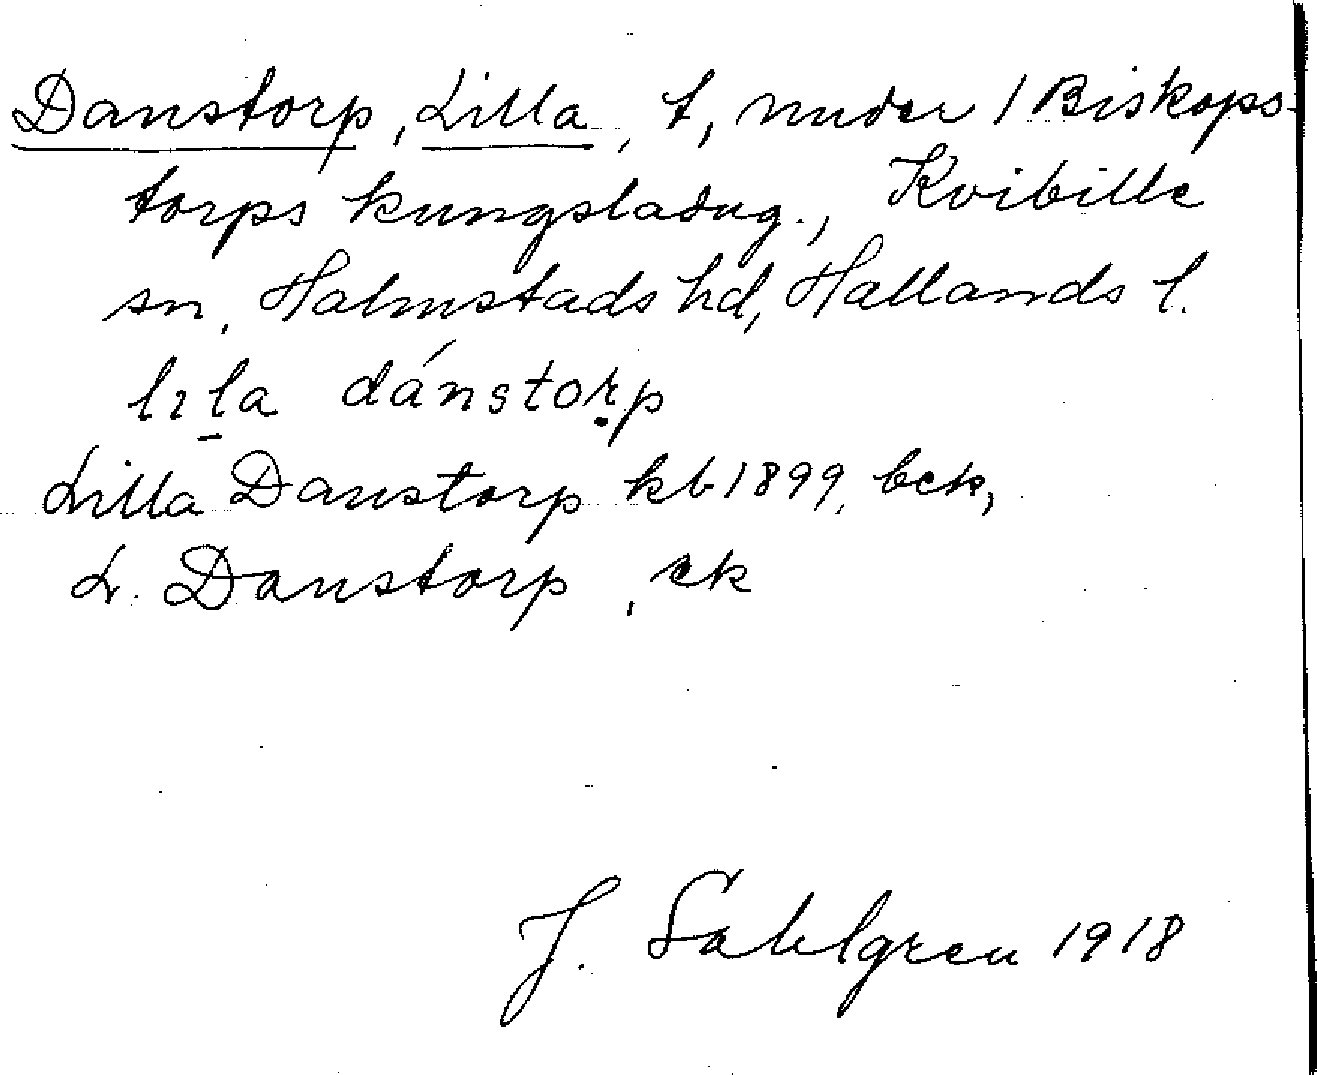 Danstorp, Lilla, t, under 1 Biskops-
torps kungsladug., Kvibille
sn, Halmstads hd, Hallands l.
lɩl̠a dánstoṛp
Lilla Danstorp kb 1899, bek,
L. Danstorp, ek
J. Sahlgren 1918